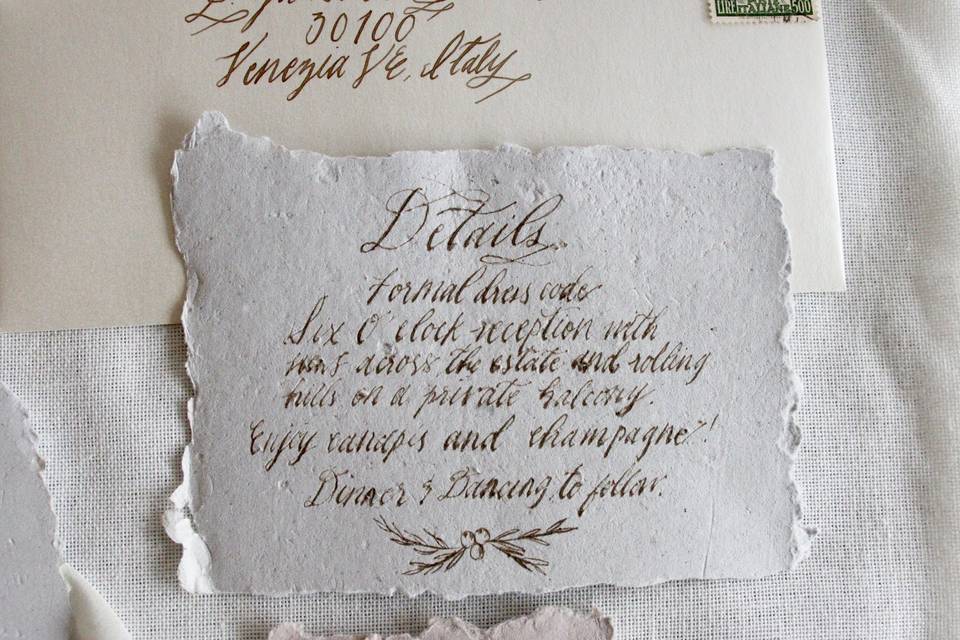 30100
Venezia VE, Italy
LIRE 500
Details
Formal dress code
Six O'clock reception with
views across the estate and rolling
hills on a private balcony.
Enjoy canapes and champagne!
Dinner & Dancing to follow.